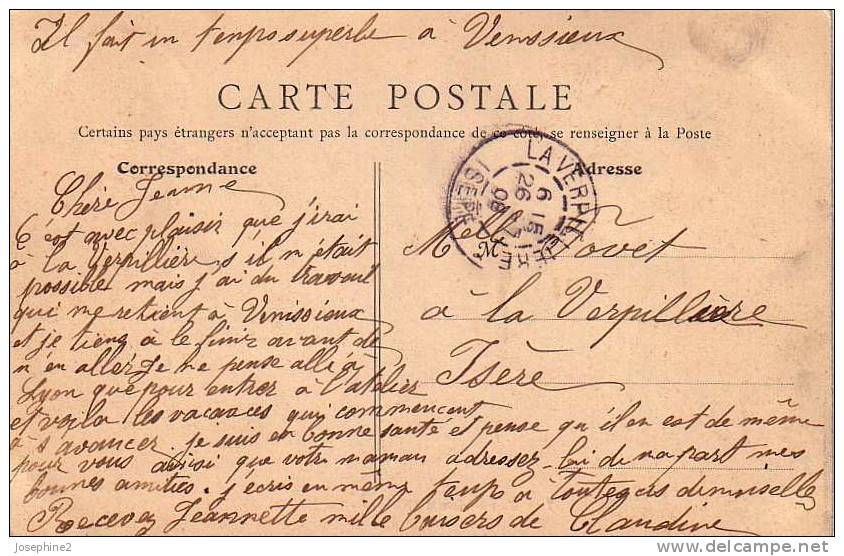 Il fait un temps superbe à Venssieux
CARTE POSTALE
Certains pays étrangers n'acceptant pas la correspondance de ce côté, se renseigner à la Poste
Correspondance
Adresse
LA VERPILLIERE
ISERE
6 15
26
08
Chère Jeanne
C'est avec plaisir que j'irai
à la Verpillière s'il m'était
possible mais j'ai du travail
qui me retient à Venissieux
et je tiens à le finir avant de
m'en aller je ne pense allé à
Lyon que pour entrer à l'atelier
et voila les vacances qui commencent
à s'avancer. je suis en bonne santé et pense qu'il en est de même
pour vous aussi que votre maman adressez-lui de ma part mes
bonnes amitiés. j'écris en même temps à toutes ces demoiselles
Recevez Jeannette mille baisers de Claudine
Melle Novet
à la Verpillière
Isère
josephine2
http://www.delcampe.net